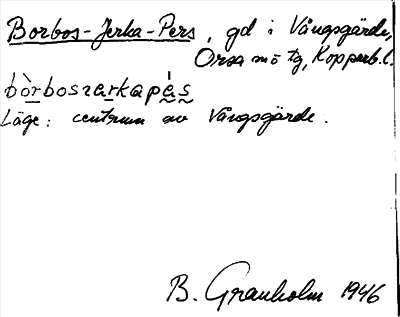 Borbos-Jerka-Pers, gd i Vångsgärde,
Orsa mö tg, Kopparb. l.
bòrbosɪarkapás
Läge: centrum av Vångsgärde.
B. Granholm 1946